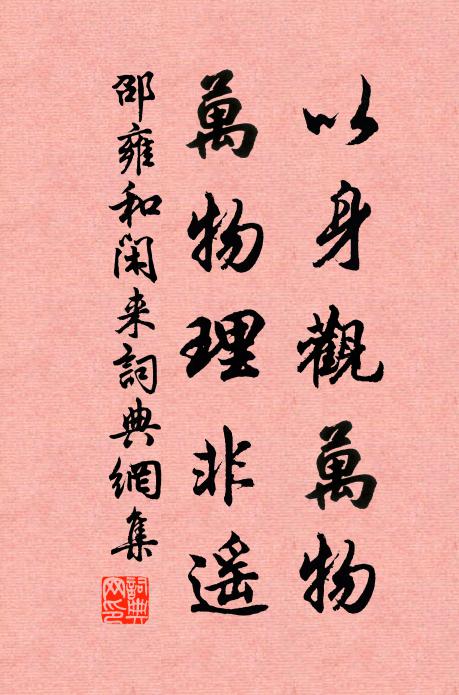 以身觀萬物
萬物理非遥
邵雍和闲来詞典網集
詞典網印